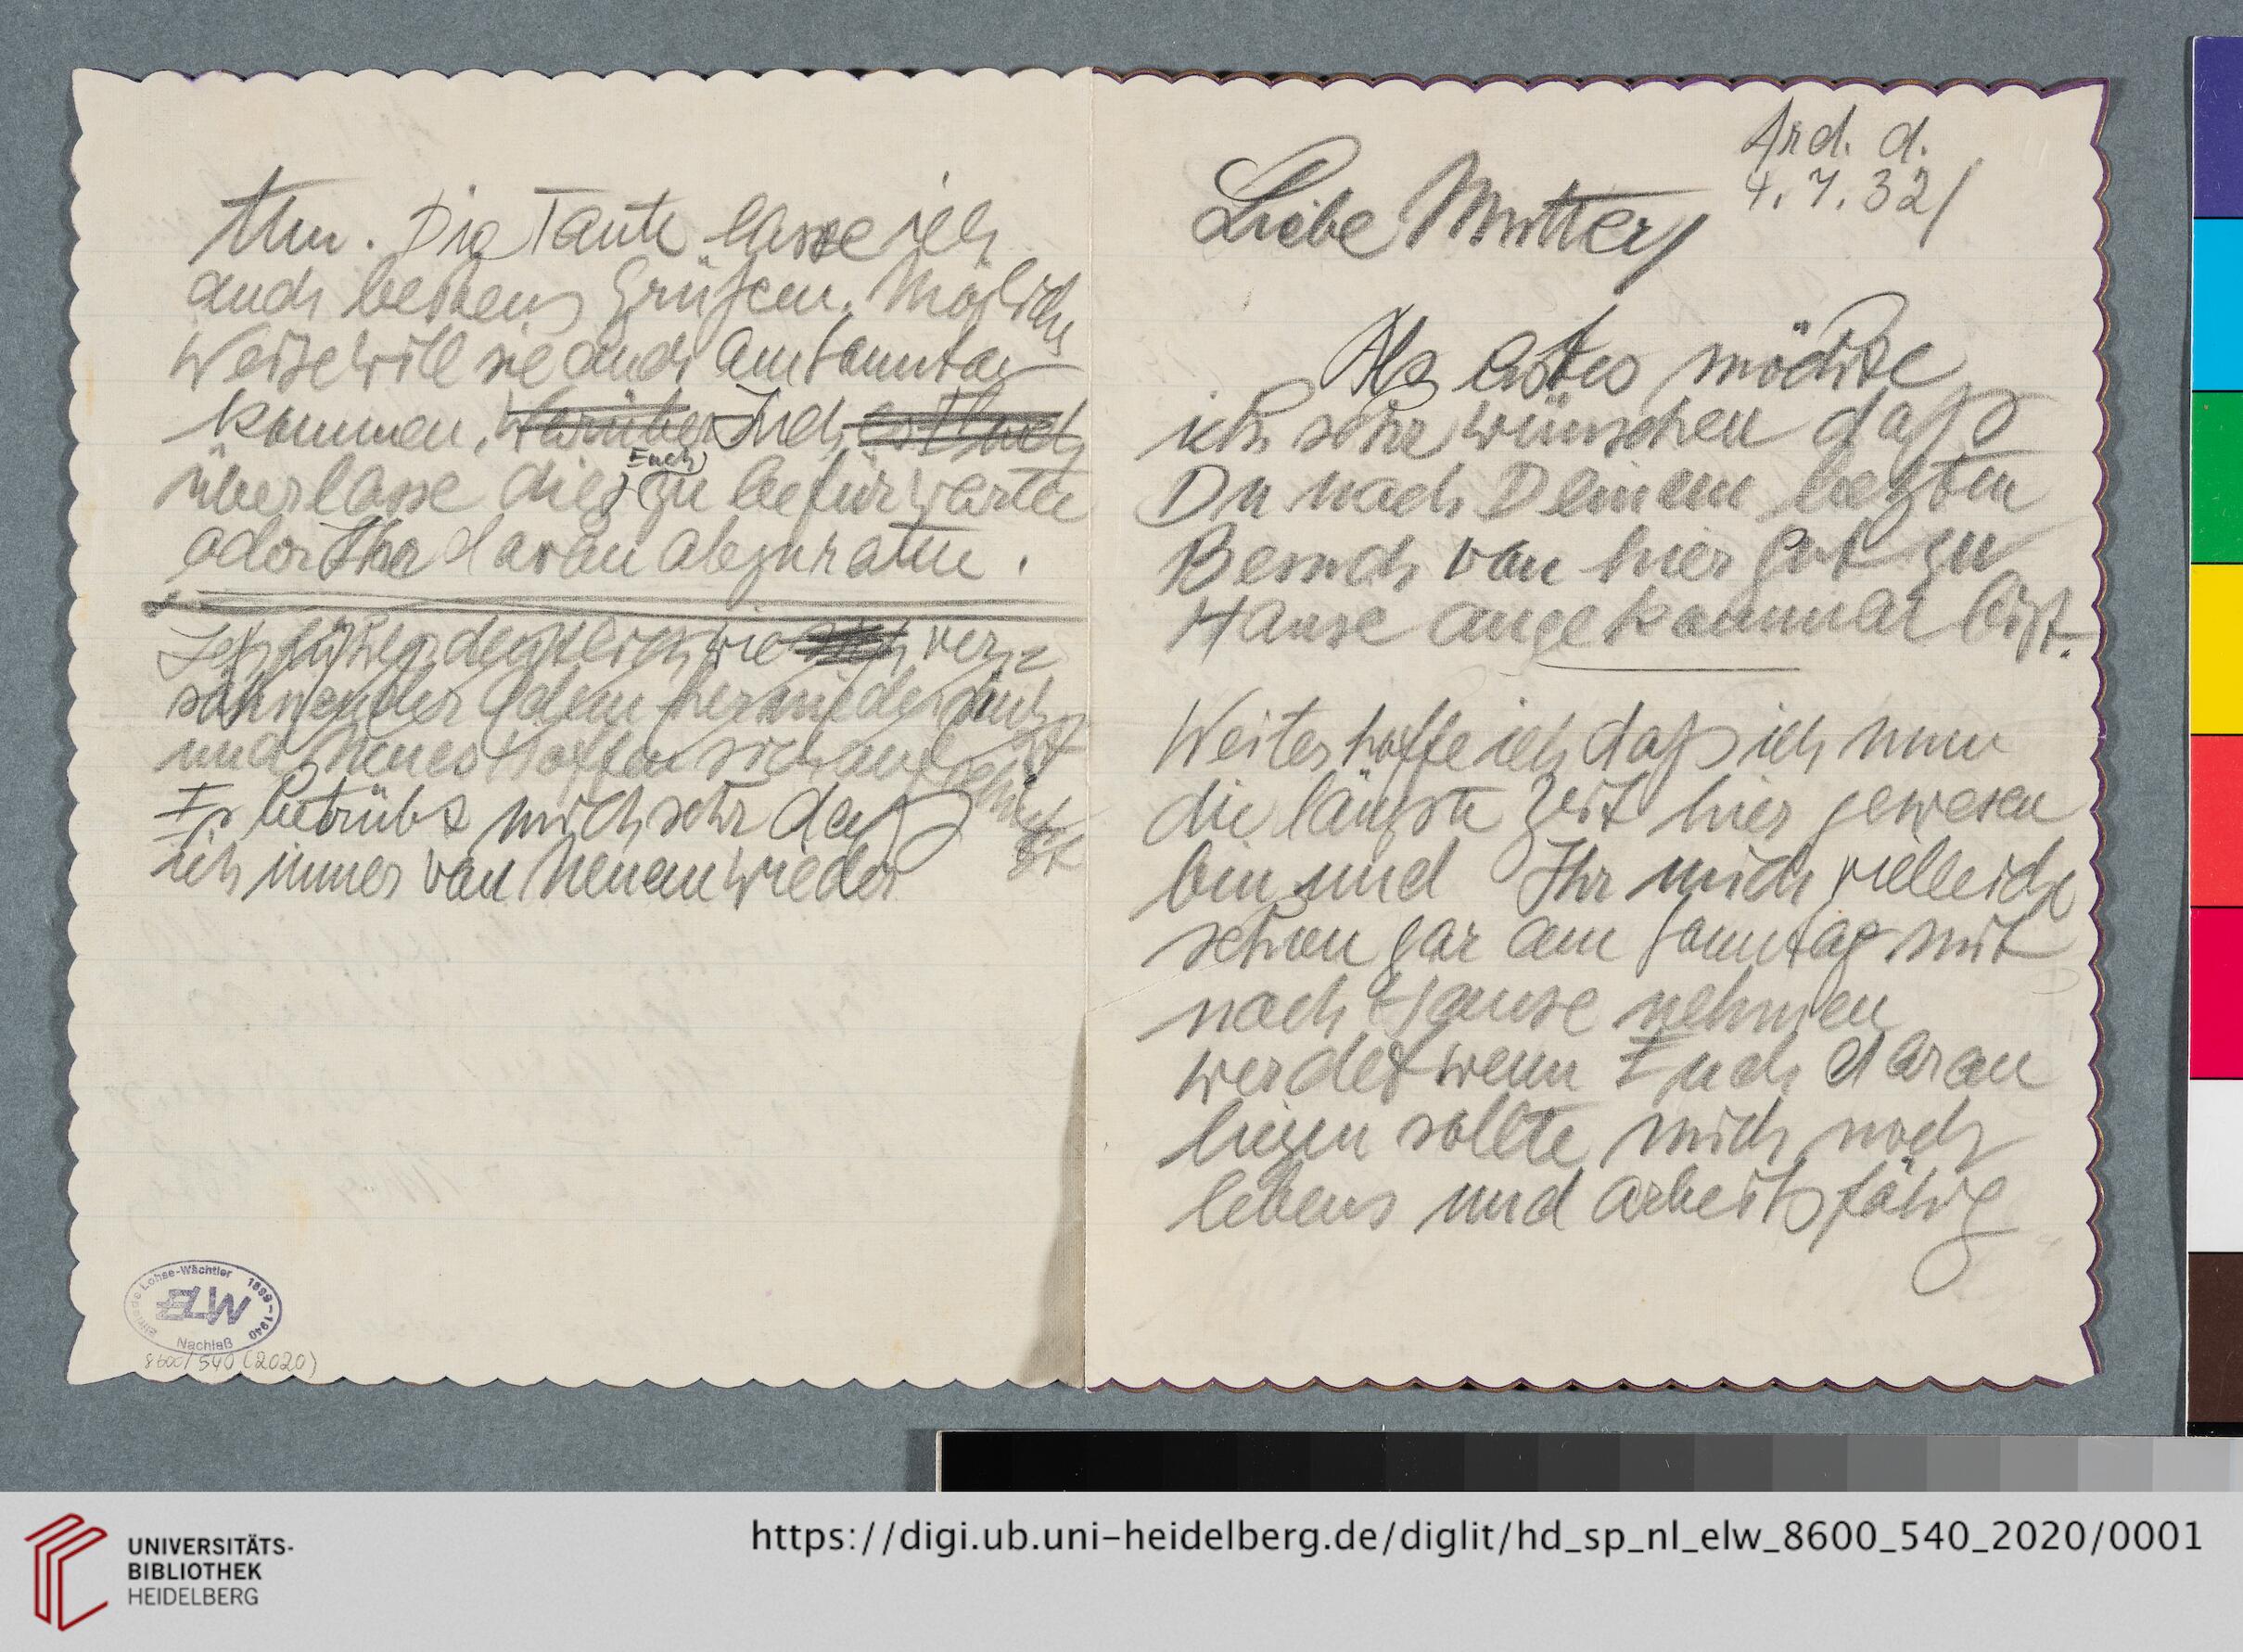 Ard. d.
4. 7. 32/
Liebe Mutter/
Als erstes möchte
ich sehr wünschen daß
Du nach Deinem letzten
Besuch von hier gut zu
Hause angekommen bist.
Weiter hoffe ich daß ich nun
die längste Zeit hier gewesen
bin und Ihr mich vielleicht
schon gar am Sonntag mit
nach Hause nehmen
werdet wenn Euch daran
liegen sollte mich noch
lebens und arbeitsfähig
Die Tante lasse ich
auch bestens Grüßen. Möglichs
Weise will sie auch am Sonntag
kommen. Ich
überlasse dies Euch zu befürworten
oder Ihr davon abzuraten.
ver-
und neues Hoffen sich
Es betrübt mich sehr daß
ich immer von Neuen wieder
Lohse-Wächtler 1899-1940
ELW
Nachlaß
8600/540 (2020)
UNIVERSITÄTS-
BIBLIOTHEK
HEIDELBERG
https://digi.ub.uni-heidelberg.de/diglit/hd_sp_nl_elw_8600_540_2020/0001